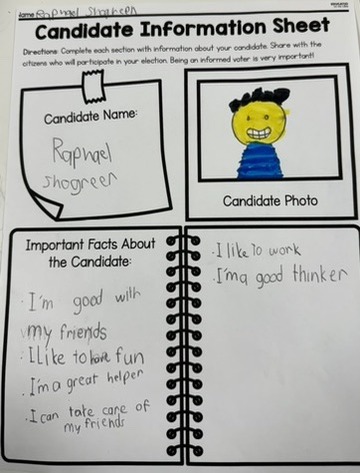 Name Raphael Shogreen
Candidate Information Sheet
Directions: Complete each section with information about your candidate. Share with the
citizens who will participate in your election. Being an informed voter is very important!
Candidate Name:
Raphael
Shogreen
Candidate Photo
Important Facts About
the Candidate:
· I'm good with
my friends
· I like to have fun
· I'm a great helper
· I can take care of
my friends
· I like to work
· I'm a good thinker